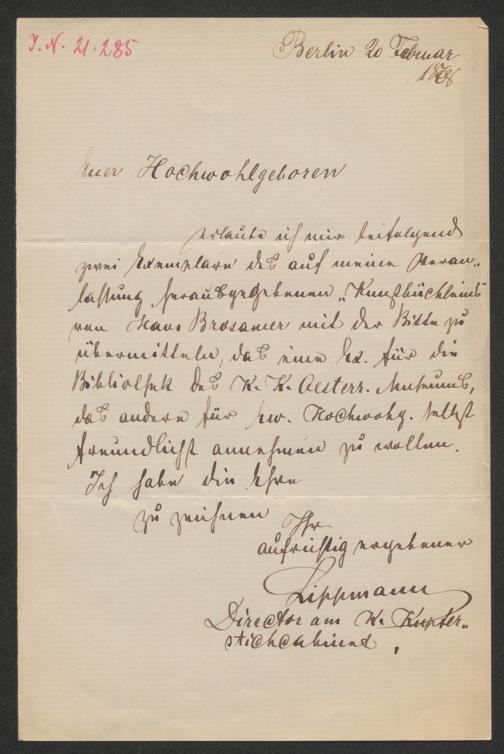 I.N. 21.285
Berlin 20 Februar
1878
Euer Hochwohlgeboren
erlaube ich mir beifolgend
zwei Exemplare des auf meine Veran-
lassung herausgegebenen „Kunstbüchleins"
von Hans Brosamer mit der Bitte zu
übermitteln, das eine Ex. für die
Bibliothek des K. K. Oesterr. Museums,
das andere für Ew. Hochwohg. selbst
freundlichst annehmen zu wollen.
Ich habe die Ehre
zu zeichnen
Ihr
aufrichtig ergebener
Lippmann
Director am K. Kupfer-
stichcabinet.